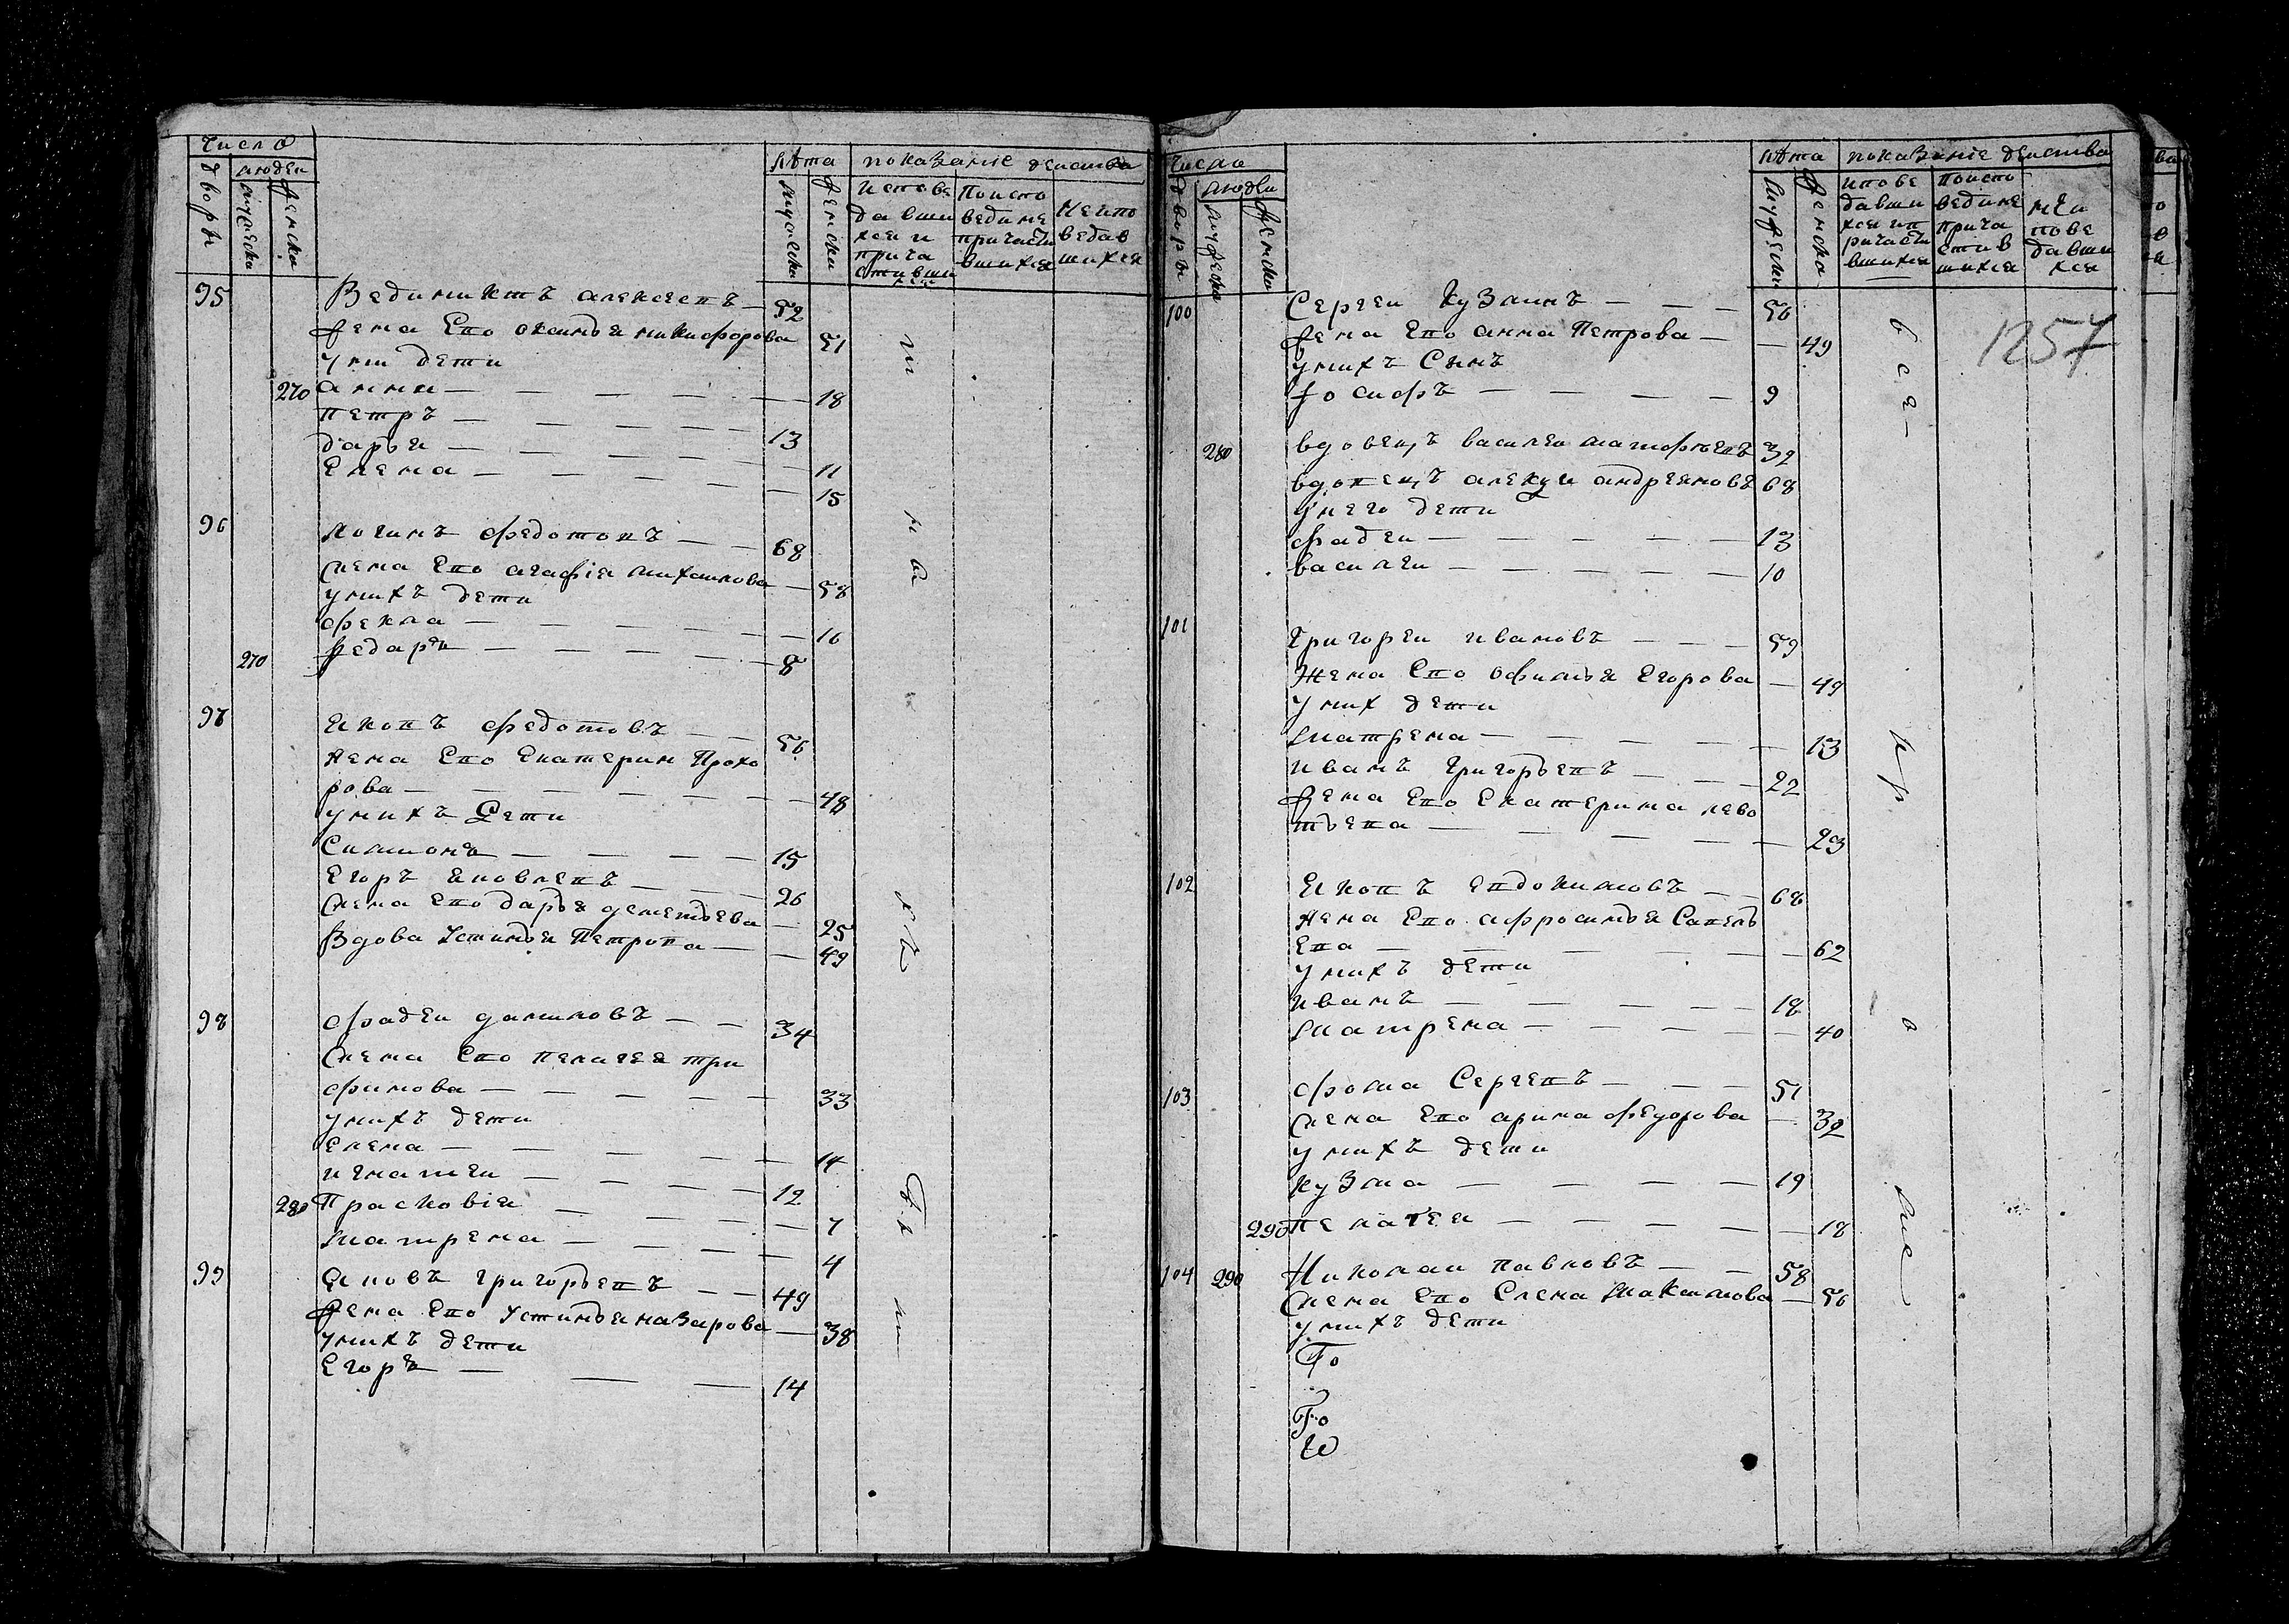 Число
дворы
людеи
мужеска
женска
лѣта
мужеска
женска
показаніе деиства
Исповедавши
хся и
прича
стивши
хся
Поиспо
ведине
причасти
вшихся
Неиспо
ведав
шихся
95 Вединиктъ алексеевъ — 52
жена Ево оксинья никифорова 51
у ни дети
270 анни — — — — — 18
Петръ — — — — — 13
дарья — — — — — 11
Елена — — — — — 15
96 логинъ федотовъ — — 68
жена Ево агафія михаилова — 58
у нихъ дети
фекла — — — — — 16
270 федаръ — — — — — 8
97 Яковъ федотовъ — — 56
жена Ево Екатерин Прохо
рова — — — — — — 48
у нихъ Дети
Симионъ — — — — 15
Егоръ яковлевъ — — — 26
жена Ево дарья дементьева — 25
Вдова Устинья Петрова — — 49
98 фадеи даниловъ — — 34
жена Ево пелагея три
фонова — — — — — 33
у нихъ дети
елена — — — — — 14
игнатеи — — — — — 12
280 Прасковія — — — — 7
матрена — — — — — 4
99 Яковъ григорьевъ — — 49
жена Ево Устинья назарова — 38
у нихъ дети
Егоръ — — — 14
Число
дворы
людеи
мужеска
женска
лѣта
мужеска
женска
показаніе деиства
испове
давши
хся ип
ричасти
вшихся
Поиспо
ведине
прича
стив
шихся
неи
пове
давши
хся
1257
100 Сергеи Кузминъ — — — 56
жена Ево анна Петрова — — 49
у нихъ Сынъ
Іосифъ — — — — 9
280 вдовецъ василеи матофеевъ 32
вдовецъ алексеи андреяновъ 68
у него дети
фадеи — — — — — 13
василеи — — — — — 10
101 Григореи ивановъ — — — 59
Жена Ево офимья Егорова — 49
у них дети
Матрена — — — — — 13
иванъ Григорьевъ — — — 22
жена Ево Екатерина лево
тьева — — — — — 23
102 Яковъ евдокимовъ — — 68
жена Ево афросинья Савель
ева — — — — — — 62
у нихъ дети
иванъ — — — — — 18
Матрена — — — — — 40
103 фома Сергеевъ — — — 51
жена Ево арина федорова — 32
у нихъ дети
кузма — — — — 19
290 пелагеи — — — — — 18
104 290 Николаи павловъ — — 58
жена Ево Елена Максимова — 56
у нихъ дети